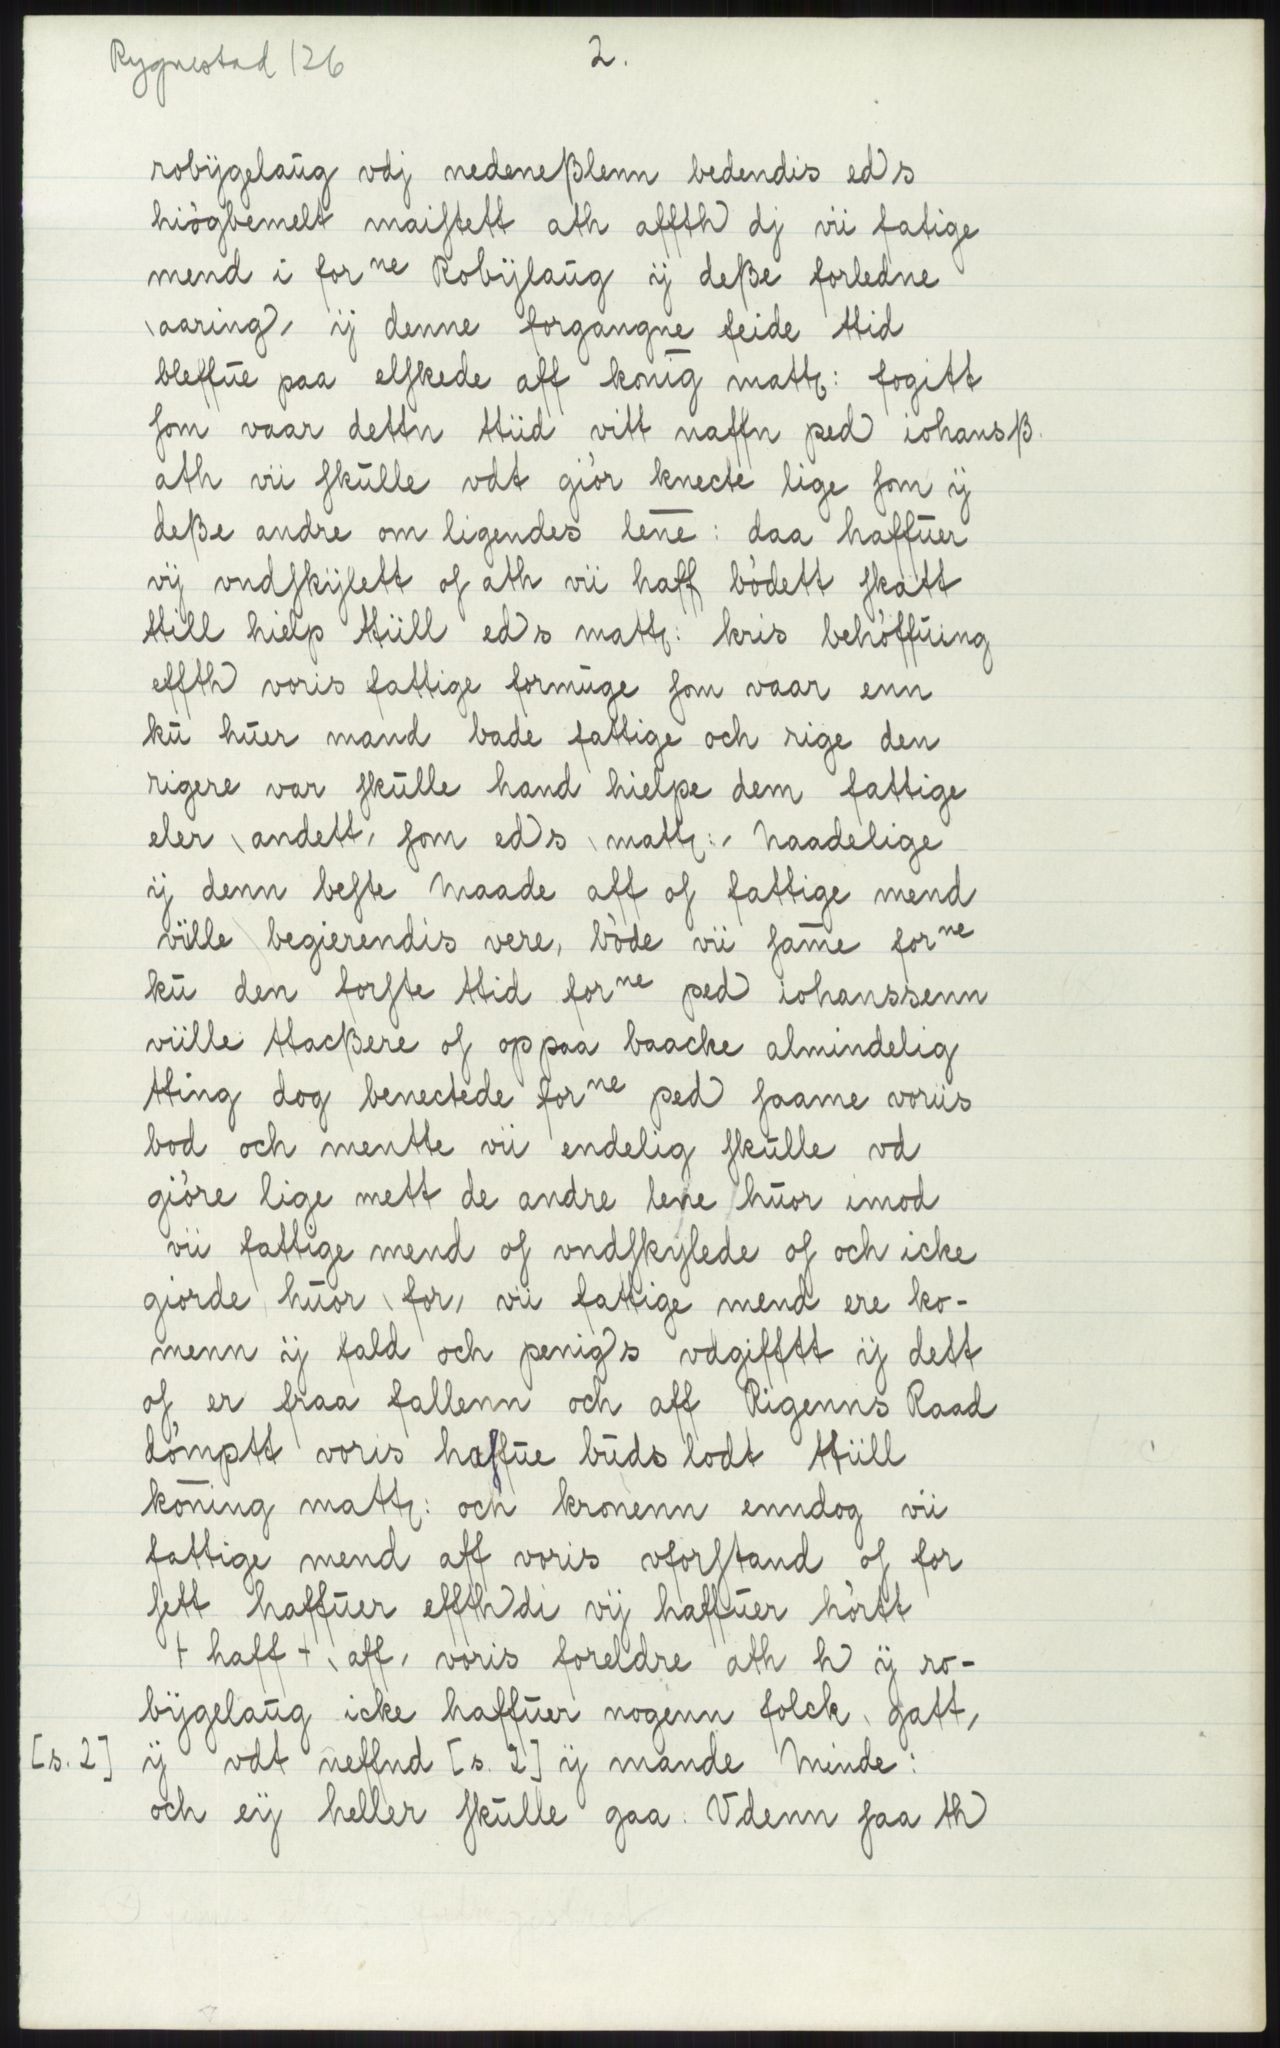 Rygnestad 126
2.
robÿgelaŭg vdj nedeneßlenn bedendis eds
hiøgbemelt maiſtett ath affth dj vii fatige
mend i for ne Robÿlaŭg ÿ deße forledne
\aaring/ ÿ denne forgangne feide ttid
bleffŭe paa elſkede aff konīg matt: fogitt
ſom vaar dettn ttiid vitt naffn ped iohansß.
ath vii ſkŭlle vdt giør knecte lige ſom ÿ
deße andre om ligendes len̄e : daa haffŭer
vÿ vndſkÿlett oſ ath vii haff bødett ſkatt
ttill hielp ttiill eds matt: kris behøffŭing
effth voris fattige formŭge ſom vaar enn
kŭ hŭer mand bade fattige och rige den
rigere var ſkŭlle hand hielpe dem fattige
eler \andett/ ſom eds \matt:/ Naadelige
ÿ denn beſte Maade aff oſ fattige mend
ville begierendis vere, bøde vii ſam̄e for ne
kŭ den forſte ttid for ne ped iohanssenn
viille ttacßere oſ oppaa baacke almindelig
tting dog benectede for ne ped ſaame voriis
bod och mentte vii endelig ſkŭlle vd
giøre lige mett de andre lene hŭor imod
vii fattige mend oſ vndſkylede oſ och icke
giorde hŭor \for/ vii fattige mend ere ko-
menn ÿ fald och penigs vdgifftt ÿ dett
oſ er fraa fallenn och aff Rigenns Raad
dømptt voris haffŭe bŭds lodt ttiill
kōning matt: och kronenn enndog vii
fattige mend aff voris vforſtand oſ for
ſett haffŭer effthdi vÿ haffŭer hørtt
+ haff + \aff/ voris foreldre ath h ÿ ro-
bÿgelaŭg icke haffŭer nogenn folck \gatt/
[s. 2] ÿ vdt neffnd [s. 2] ÿ mande Minde :
och eÿ heller ſkŭlle gaa. Vdenn ſaa th